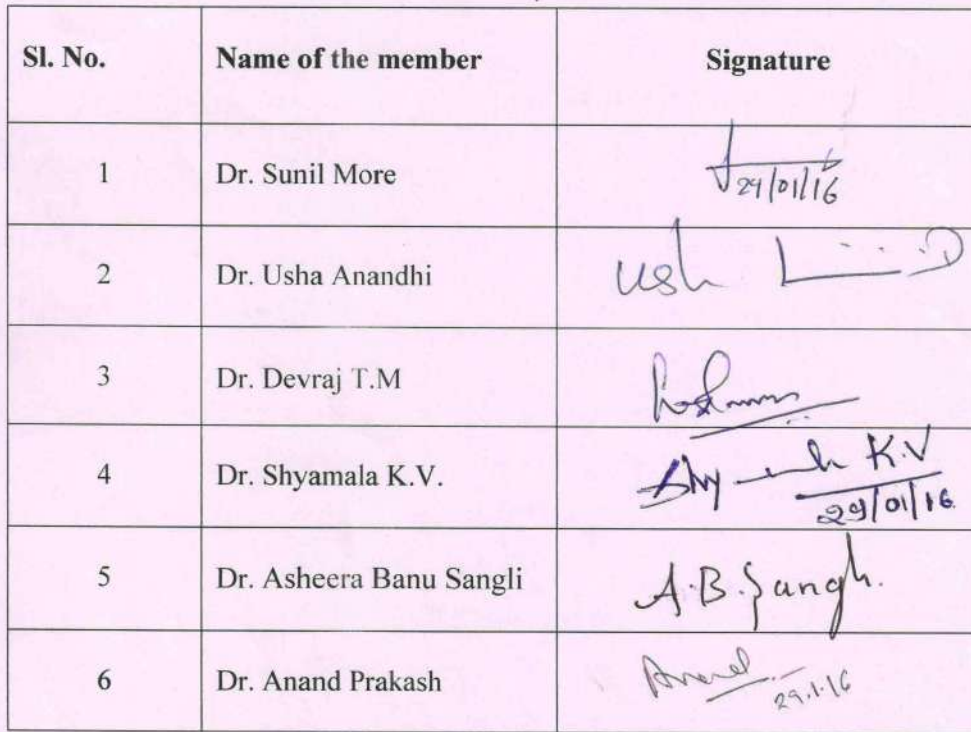 Sl. No. Name of the member Signature
1 Dr. Sunil More
29/01/16
2 Dr. Usha Anandhi Ush
3 Dr. Devraj T.M
4 Dr. Shyamala K.V. Shy K.V
29/01/16
5 Dr. Asheera Banu Sangli A.B.Sangli.
6 Dr. Anand Prakash Anand
29.1.16